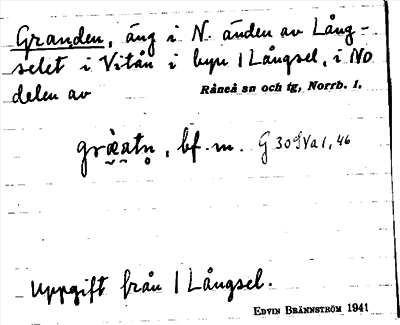 Granden, äng i N. änden av Lång-
selet i Vitån i byn | Långsel, i NO
delen av Råneå sn och tg, Norrb. l.
, bf. m. G 30
Uppgift från | Långsel.
EDVIN BRÄNNSTRÖM 1941